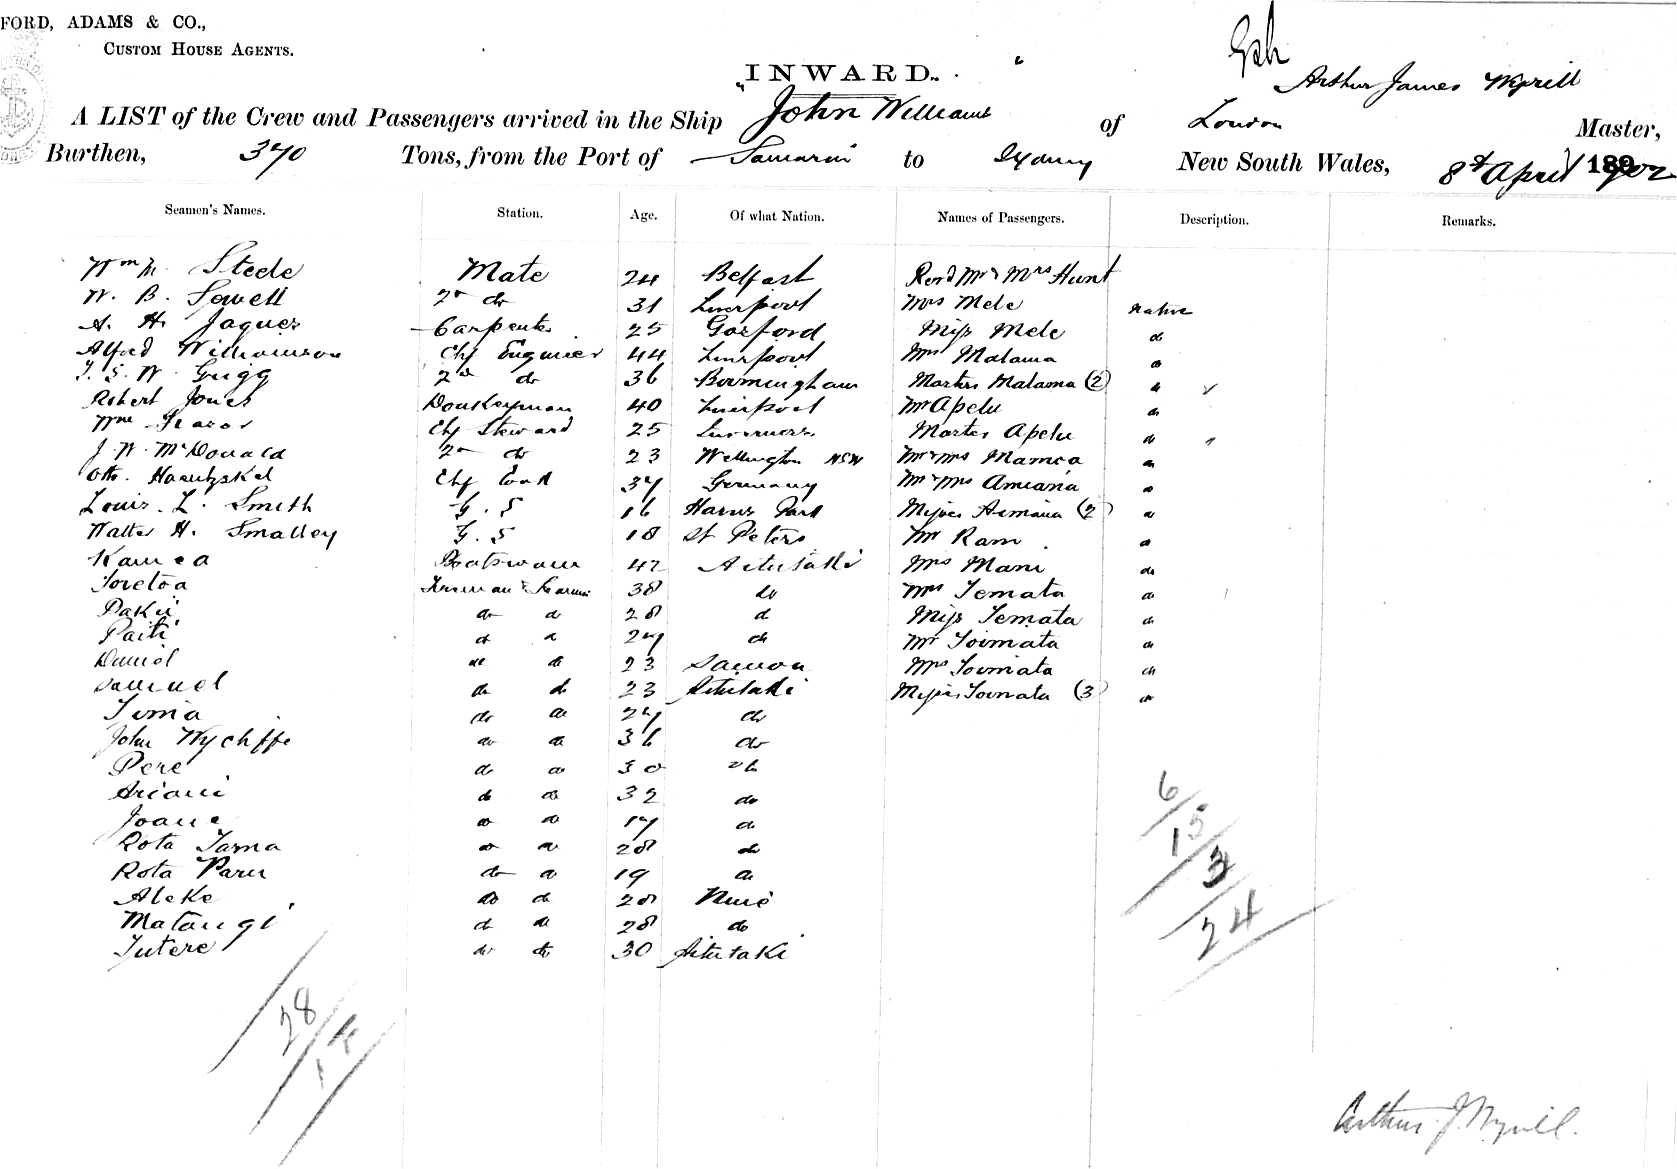 FORD, ADAMS & CO.,
CUSTOM HOUSE AGENTS.
"INWARD."
Arthur James Wyrill
A LIST of the Crew and Passengers arrived in the Ship John Williams of London Master,
Burthen, 370 Tons, from the Port of Samarai to Sydney New South Wales, 8th April 1902
Seamen's Names. Station. Age. Of what Nation. Names of Passengers. Description. Remarks.
Wm M. Steele Mate 24 Belfast Revd Mr & Mrs Hunt
W. B. Sewell 2nd do 31 Liverpool Mrs Mele native
A. H. Jaques Carpenter 25 Gosford Miss Mele do
Alfred Williamson Chf Engineer 44 Liverpool Mrs Malama do
T. S. W. Grigg 2nd do 36 Birmingham Masters Malama (2) do
Robert Jones Donkeyman 40 Liverpool Mr Apelu do
Wm Frazer Chf Steward 25 Inverness Master Apelu do
J. W. McDonald 2nd do 23 Wellington NSW Mr & Mrs Mamea do
Otto Chf Cook 37 Germany Mr & Mrs Amiana do
Louis L. Smith G. S 16 Harris Park Misses Amiana (2) do
Walter H. Smalley G. S 18 St Peters Mr Rani do
Kamea Boatswain 42 Aitutaki Mrs Mani do
Toretoa Fireman & Seaman 38 do Mrs Temata do
Pakii do do 28 do Miss Temata do
Paiti do do 27 do Mr Toimata do
Daniel do do 23 Samoa Mrs Toimata do
Samuel do do 23 Aitutaki Misses Toimata (3) do
Tima do do 27 do
John Wycliffe do do 36 do
Pere do do 30 do
Ariani do do 32 do
Joane do do 17 do
Rota Tama do do 28 do
Rota Paru do do 19 do
Aleke do do 28 Niue
Matangi do do 28 do
Tutere do do 30 Aitutaki
6
15
3
24
28
14
Arthur J. Wyrill.